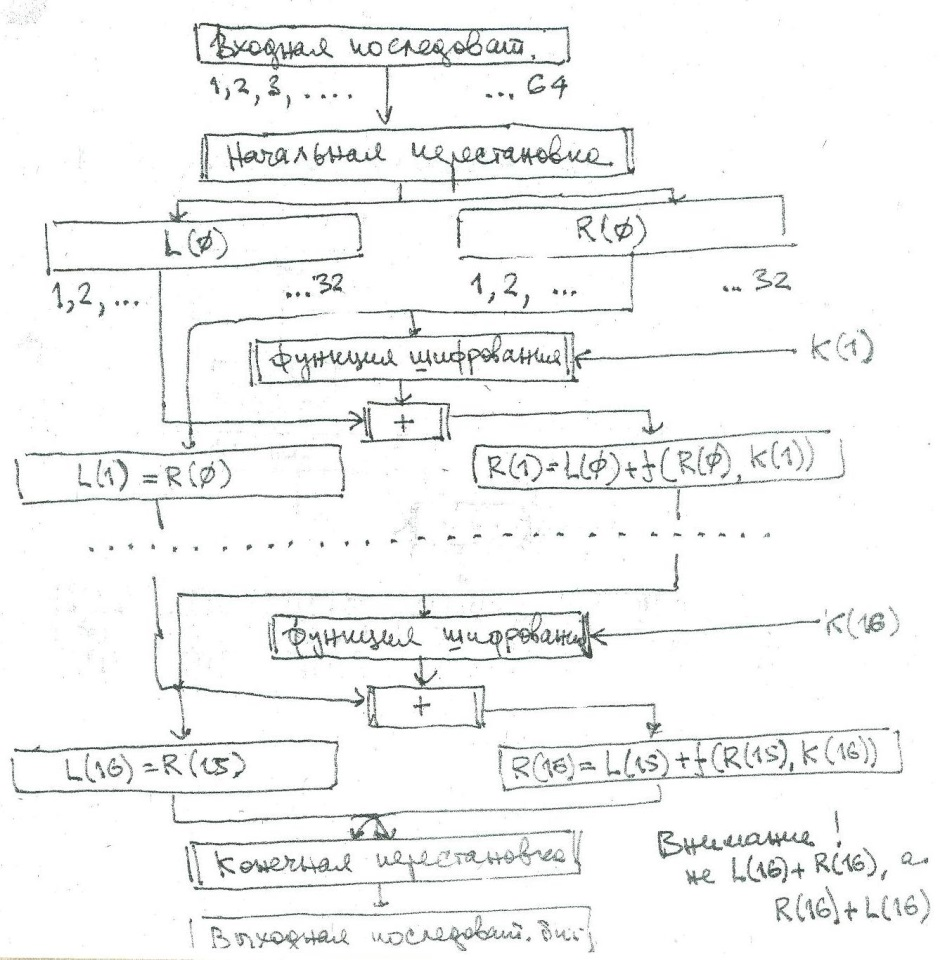 Входная последоват.
1, 2, 3, .... ... 64
Начальная перестановка
L(ø) R(ø)
1, 2, ... ...32 1, 2, ... ... 32
функция шифрования K(1)
+
L(1) = R(ø) R(1) = L(ø) + f(R(ø), K(1))
функция шифрования K(16)
+
L(16) = R(15) R(16) = L(15) + f(R(15), K(16))
Внимание!
Конечная перестановка не L(16) + R(16), а
R(16) + L(16)
Выходная последоват. бит